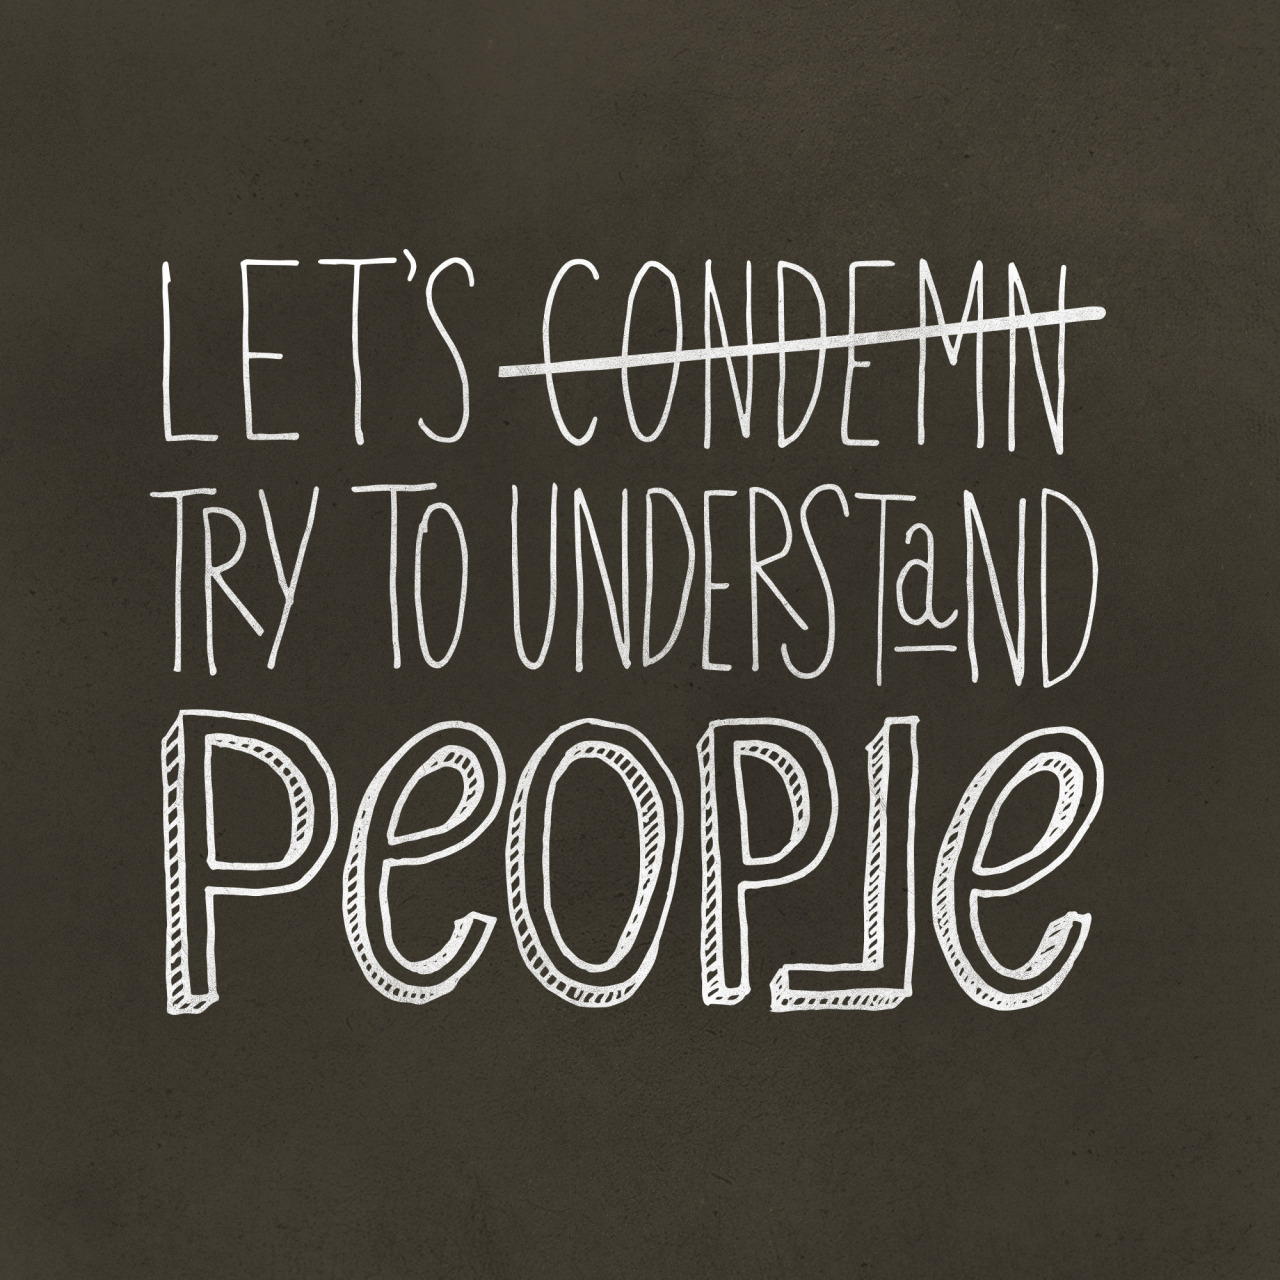 LET'S CONDEMN
TRY TO UNDERSTaND
PeOPLe